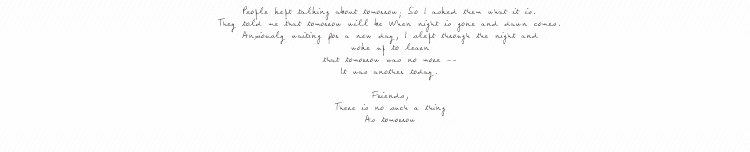 People kept talking about tomorrow, So I asked them what it is.
They told me that tomorrow will be When night is gone and dawn comes.
Anxiously waiting for a new day, I slept through the night and
woke up to learn
that tomorrow was no more --
It was another today.
Friends,
There is no such a thing
As tomorrow